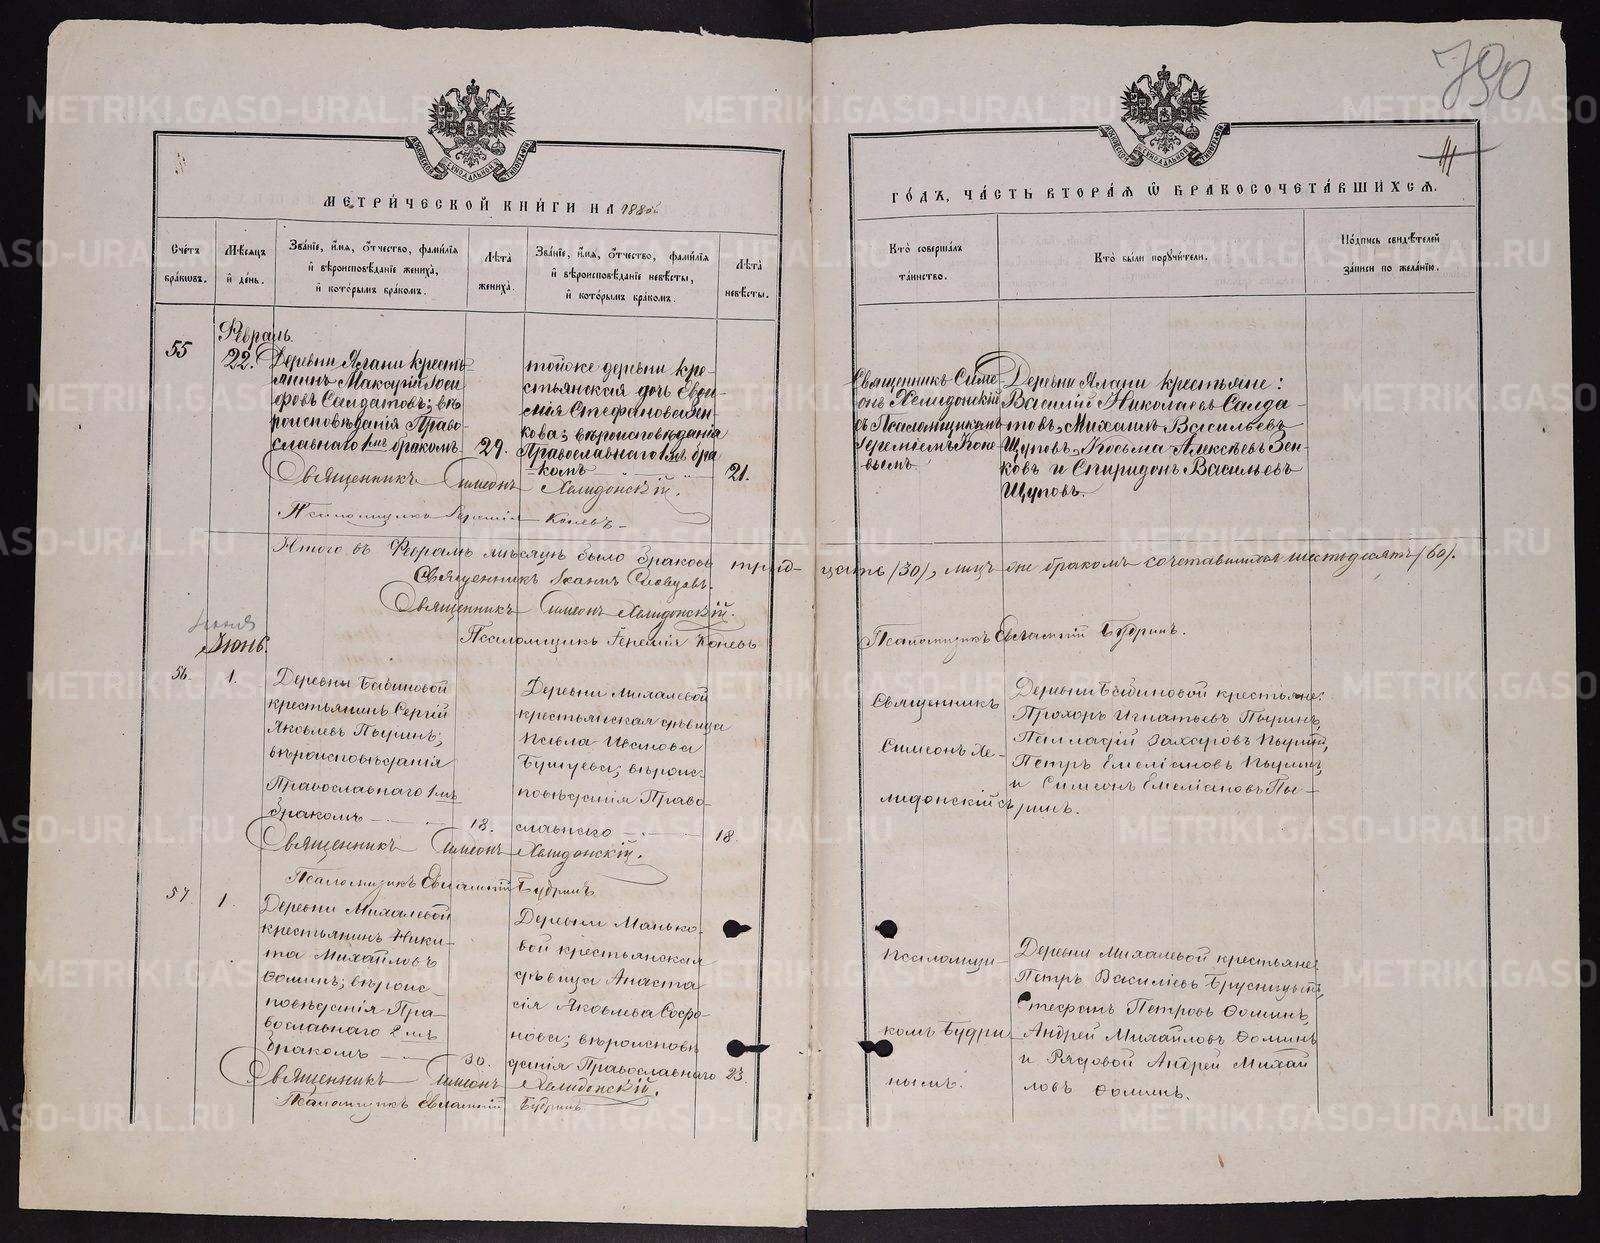 790
МЕТРИ́ЧЕСКОЙ КНИ́ГИ НА 1880й
ГО́ДЪ, ЧА́СТЬ ВТОРА́Я Ѿ БРАКОСОЧЕТА́ВШИХСЯ.
Сче́тъ бра́ковъ.
Мѣ́сяцъ и҆ де́нь.
Зва́нїе, и҆́мя, ѻ҆́тчество, фами́лїя
и҆ вѣроисповѣ́данїе жениха̀,
и҆ кото́рымъ бра́комъ.
Лѣ́та жениха̀.
Зва́нїе, и҆́мя, ѻ҆́тчество, фами́лїя
и҆ вѣроисповѣ́данїе невѣ́сты,
и҆ кото́рымъ бра́комъ.
Лѣ́та невѣ́сты.
Кто̀ соверша́лъ
та́инство.
Кто̀ бы́ли порꙋчи́тели.
По́дпись свидѣ́телей
за́писи по жела́нїю.
Февраль.
55
22.
Деревни Ялани кресть-
янинъ Макарій Іоси
фовъ Салдатовъ; вѣ
роисповѣданія Право-
славнаго 1мъ бракомъ
29.
тойже деревни кре-
стьянская дочь Евѳи-
мія Стефановa Зен-
кова; вѣроисповѣданія
Православнаго 1мъ бра
комъ
21.
Священникъ Симе-
онъ Хелидонскій
съ Псаломщикомъ
Іереміемъ Коне-
вымъ.
Деревни Ялани крестьяне:
Василій Николаевъ Салда-
товъ, Михаилъ Васильевъ
Щуповъ, Косьма Алексѣевъ Зен-
ковъ и Спиридонъ Васильевъ
Щуповъ.
Священникъ Симеонъ Хелидонскій.
Псаломщикъ Іеремія Коневъ
Итого въ Февралѣ мѣсяцѣ было браковъ трид- цать (30), лицъ бракомъ сочетавшихся шестьдесятъ (60).
Священникъ Іоаннъ Словцовъ.
Священникъ Симеонъ Хелидонскій.
Псаломщикъ Іеремія Коневъ
Псаломщикъ Евлампій Будринъ.
Іюня
Іюнь.
56.
1.
Деревни Бабиновой
крестьянинъ Сергій
Яковлевъ Пыринъ;
вѣроисповѣданія
Православнаго 1мъ
бракомъ
18.
Деревни Михалевой
крестьянская дѣвица
Павла Иванова
Бунуева; вѣроис-
повѣданія Право-
славнаго
18.
Священникъ
Симеонъ Хе-
лидонскій съ
Деревни Бабиновой крестьяне:
Прохоръ Игнатьевъ Пыринъ,
Палладій Захаровъ Пыринъ,
Петръ Емеліановъ Пыринъ,
и Симеонъ Емеліановъ Пы-
ринъ.
Священникъ Симеонъ Хелидонскій.
Псаломщикъ Евлампій Будринъ
57.
1.
Деревни Михалевой
крестьянинъ Ники-
та Михайловъ
Ѳоминъ; вѣроис-
повѣданія Пра-
вославнаго 2мъ
бракомъ
30.
Деревни Манько-
вой крестьянская
дѣвица Анаста
сія Яковлева Софо-
нова; вѣроисповѣ
данія Православнаго
23.
псаломщи-
комъ Будри-
нымъ.
Деревни Михалевой крестьяне:
Петръ Василіевъ Брусницынъ,
Стефанъ Петровъ Ѳоминъ,
Андрей Михайловъ Ѳоминъ
и Рядовой Андрей Михай
ловъ Ѳоминъ.
Священникъ Симеонъ Хелидонскій.
Псаломщикъ Евлампій Будринъ.
METRIKI.GASO-URAL.RU